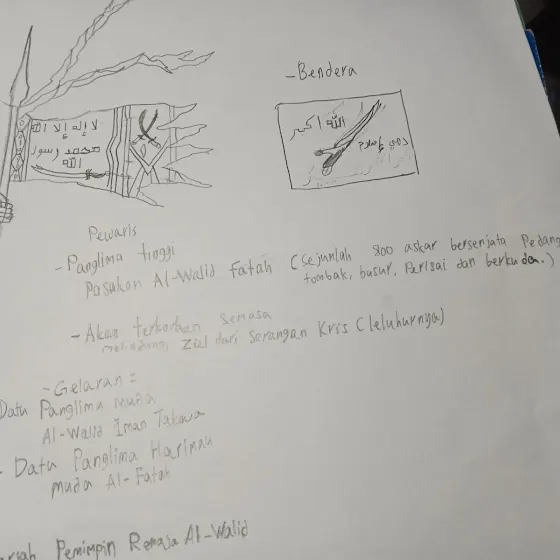 لا إله إلا الله
محمد رسول
الله
- Bendera
الله اكبر
دمي إسلام
Pewaris
- Panglima tinggi
Pasukan Al-Walid Fatah (Sejumlah 800 askar bersenjata Pedang
tombak, busur, Perisai dan berkuda.)
- Akan terkorban semasa
Ziel dari serangan Kris (leluhurnya)
- Gelaran =
Datu Panglima muda
Al-Walid Iman Takwa
- Datu Panglima Harimau
muda Al-Fatah
Pemimpin Remaja Al-Walid